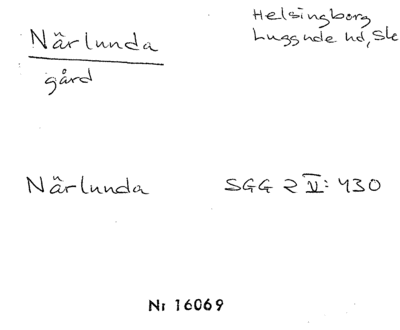 Närlunda
gård
Helsingborg
Luggude hd, Sk
Närlunda SGG 2 V: 430
Nr 16069